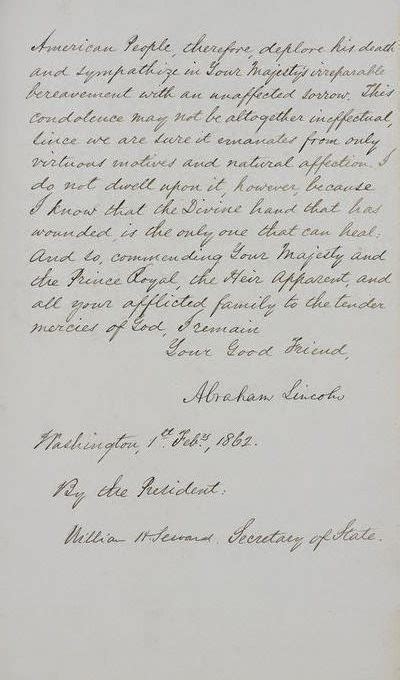 American People, therefore, deplore his death
and sympathize in Your Majesty's irreparable
bereavement with an unaffected sorrow. This
condolence may not be altogether ineffectual,
since we are sure it emanates from only
virtuous motives and natural affection. I
do not dwell upon it, however, because
I know that the Divine hand that has
wounded, is the only one that can heal:
And so, commending Your Majesty and
the Prince Royal, the Heir Apparent, and
all your afflicted family to the tender
mercies of God, I remain
Your Good Friend,
Abraham Lincoln
Washington, 1st Feby, 1862.
By the President:
William H Seward. Secretary of State.